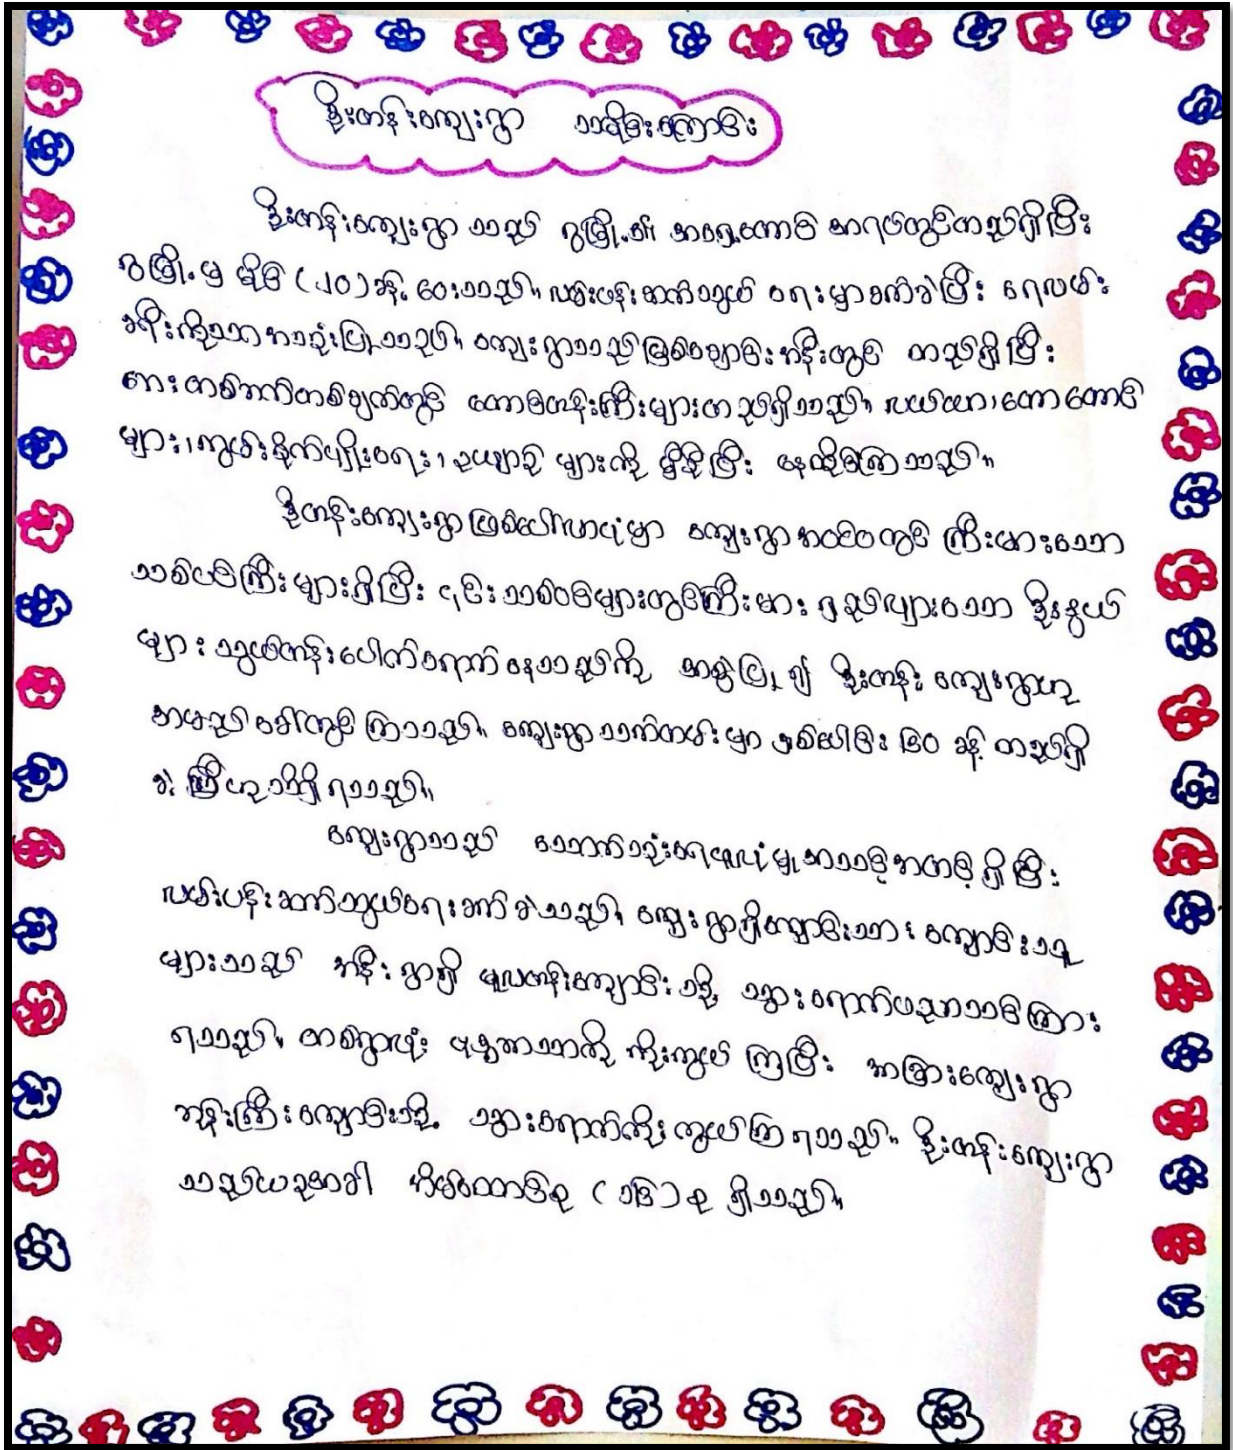 ဒိုးတန်းကျေးရွာ သမိုင်းကြောင်း
ဒိုးတန်းကျေးရွာ သည် ဂွမြို့၏ အရှေ့တောင် အရပ်တွင်တည်ရှိပြီး
ဂွမြို့မှ မိုင် (၂၀)ခန့် ဝေးသည်။ လမ်းပန်းဆက်သွယ် ရေးမှာခက်ခဲပြီး ရေလမ်း
ခရီးကိုသာအသုံးပြုသည်။ ကျေးရွာသည်မြစ်ချောင်းအနီးတွင် တည်ရှိပြီး
ဘေးတစ်ဘက်တစ်ချက်တွင် တောင်တန်းကြီးများတည်ရှိသည်။ လယ်ယာ၊တောတောင်
များ၊ကျွမ်းစိုက်ပျိုးရေး၊ဥယျာဉ် များကို မှီခိုပြီး နေထိုင်ကြသည်။
ဒိုးတန်းကျေးရွာဖြစ်ပေါ်လာပုံမှာ ကျေးရွာအဝင်ဝတွင် ကြီးမားသော
သစ်ပင်ကြီးများရှိပြီး ၎င်းသစ်ပင်များတွင်ကြီးမား ရှည်လျားသော ဒိုးနွယ်
များ သွယ်တန်းပေါက်ရောက်နေသည်ကို အစွဲပြု၍ ဒိုးတန်း ကျေးရွာဟု
အမည်ခေါ်တွင်ကြသည်။ ကျေးရွာသက်တမ်းမှာ နှစ်ပေါင်း ၆၀ ခန့် တည်ရှိ
ခဲ့ပြီဟုသိရှိရသည်။
ကျေးရွာသည် သောက်သုံးရေဖူလုံမှုအသင့်အတင့်ရှိပြီး
လမ်းပန်းဆက်သွယ်ရေးခက်ခဲသည်။ ကျေးရွာရှိကျောင်းသား ကျောင်းသူ
များသည် အနီးရွာရှိ မူလတန်းကျောင်းသို့ သွားရောက်ပညာသင်ကြား
ရသည်။ တစ်ရွာလုံး ဗုဒ္ဓဘာသာကို ကိုးကွယ်ကြပြီး အခြားကျေးရွာ
ဘုန်းကြီးကျောင်းသို့ သွားရောက်ကိုးကွယ်ကြရသည်။ ဒိုးတန်းကျေးရွာ
သည်ယခုအခါ အိမ်ထောင်စု (၁၆)စု ရှိသည်။